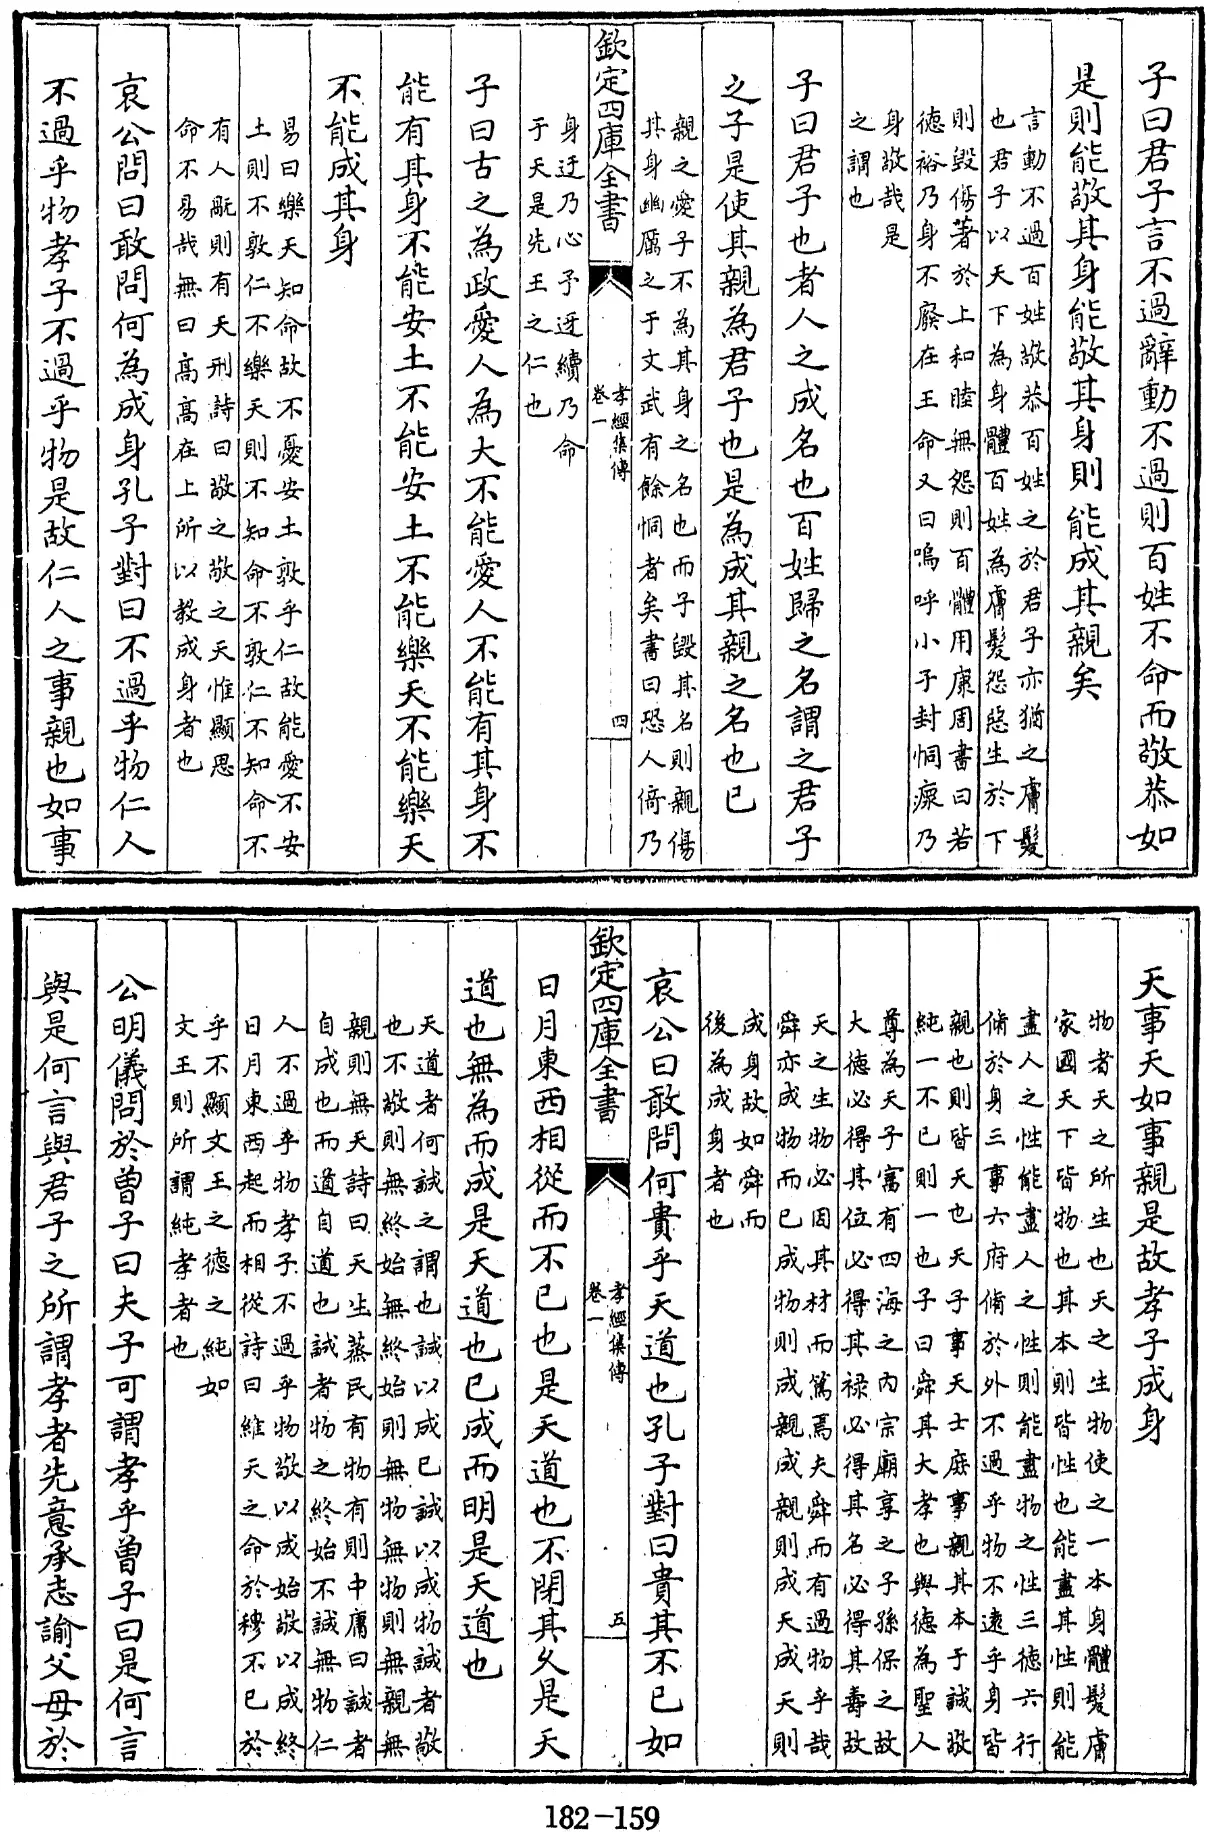 子曰君子言不過辭動不過則百姓不命而敬恭如
是則能敬其身能敬其身則能成其親矣
言動不過百姓敬恭百姓之於君子亦猶之膚髮
也君子以天下為身體百姓為膚髮怨惡生於下
則毀傷著於上和睦無怨則百體用康周書曰若
德裕乃身不廢在王命又曰嗚呼小子封恫瘝乃
身敬哉是
之謂也
子曰君子也者人之成名也百姓歸之名謂之君子
之子是使其親為君子也是為成其親之名也已
親之愛子不為其身之名也而子毀其名則親傷
其身幽厲之于文武有餘恫者矣書曰恐人倚乃
欽定四庫全書
孝經集傳
卷一
四
身迂乃心予迓續乃命
于天是先王之仁也
子曰古之為政愛人為大不能愛人不能有其身不
能有其身不能安土不能安土不能樂天不能樂天
不能成其身
易曰樂天知命故不憂安土敦乎仁故能愛不安
土則不敦仁不樂天則不知命不敦仁不知命不
有人㓕則有天刑詩曰敬之敬之天惟顯思
命不易哉無曰高高在上所以教成身者也
哀公問曰敢問何為成身孔子對曰不過乎物仁人
不過乎物孝子不過乎物是故仁人之事親也如事
天事天如事親是故孝子成身
物者天之所生也天之生物使之一本身體髮膚
家國天下皆物也其本則皆性也能盡其性則能
盡人之性能盡人之性則能盡物之性三德六行
脩於身三事六府脩於外不過乎物不遠乎身皆
親也則皆天也天子事天士庶事親其本于誠敬
純一不已則一也子曰舜其大孝也與德為聖人
尊為天子富有四海之內宗廟享之子孫保之故
大德必得其位必得其祿必得其名必得其壽故
天之生物必因其材而篤焉夫舜而有過物乎哉
舜亦成物而已成物則成親成親則成天成天則
成身故如舜而
後為成身者也
哀公曰敢問何貴乎天道也孔子對曰貴其不已如
欽定四庫全書
孝經集傳
卷一
五
日月東西相從而不已也是天道也不閉其久是天
道也無為而成是天道也已成而明是天道也
天道者何誠之謂也誠以成已誠以成物誠者敬
也不敬則無終始無終始則無物無物則無親無
親則無天詩曰天生蒸民有物有則中庸曰誠者
自成也而道自道也誠者物之終始不誠無物仁
人不過乎物孝子不過乎物敬以成始敬以成終
日月東西起而相從詩曰維天之命於穆不已於
乎不顯文王之德之純如
文王則所謂純孝者也
公明儀問於曽子曰夫子可謂孝乎曽子曰是何言
與是何言與君子之所謂孝者先意承志諭父母於
182-159